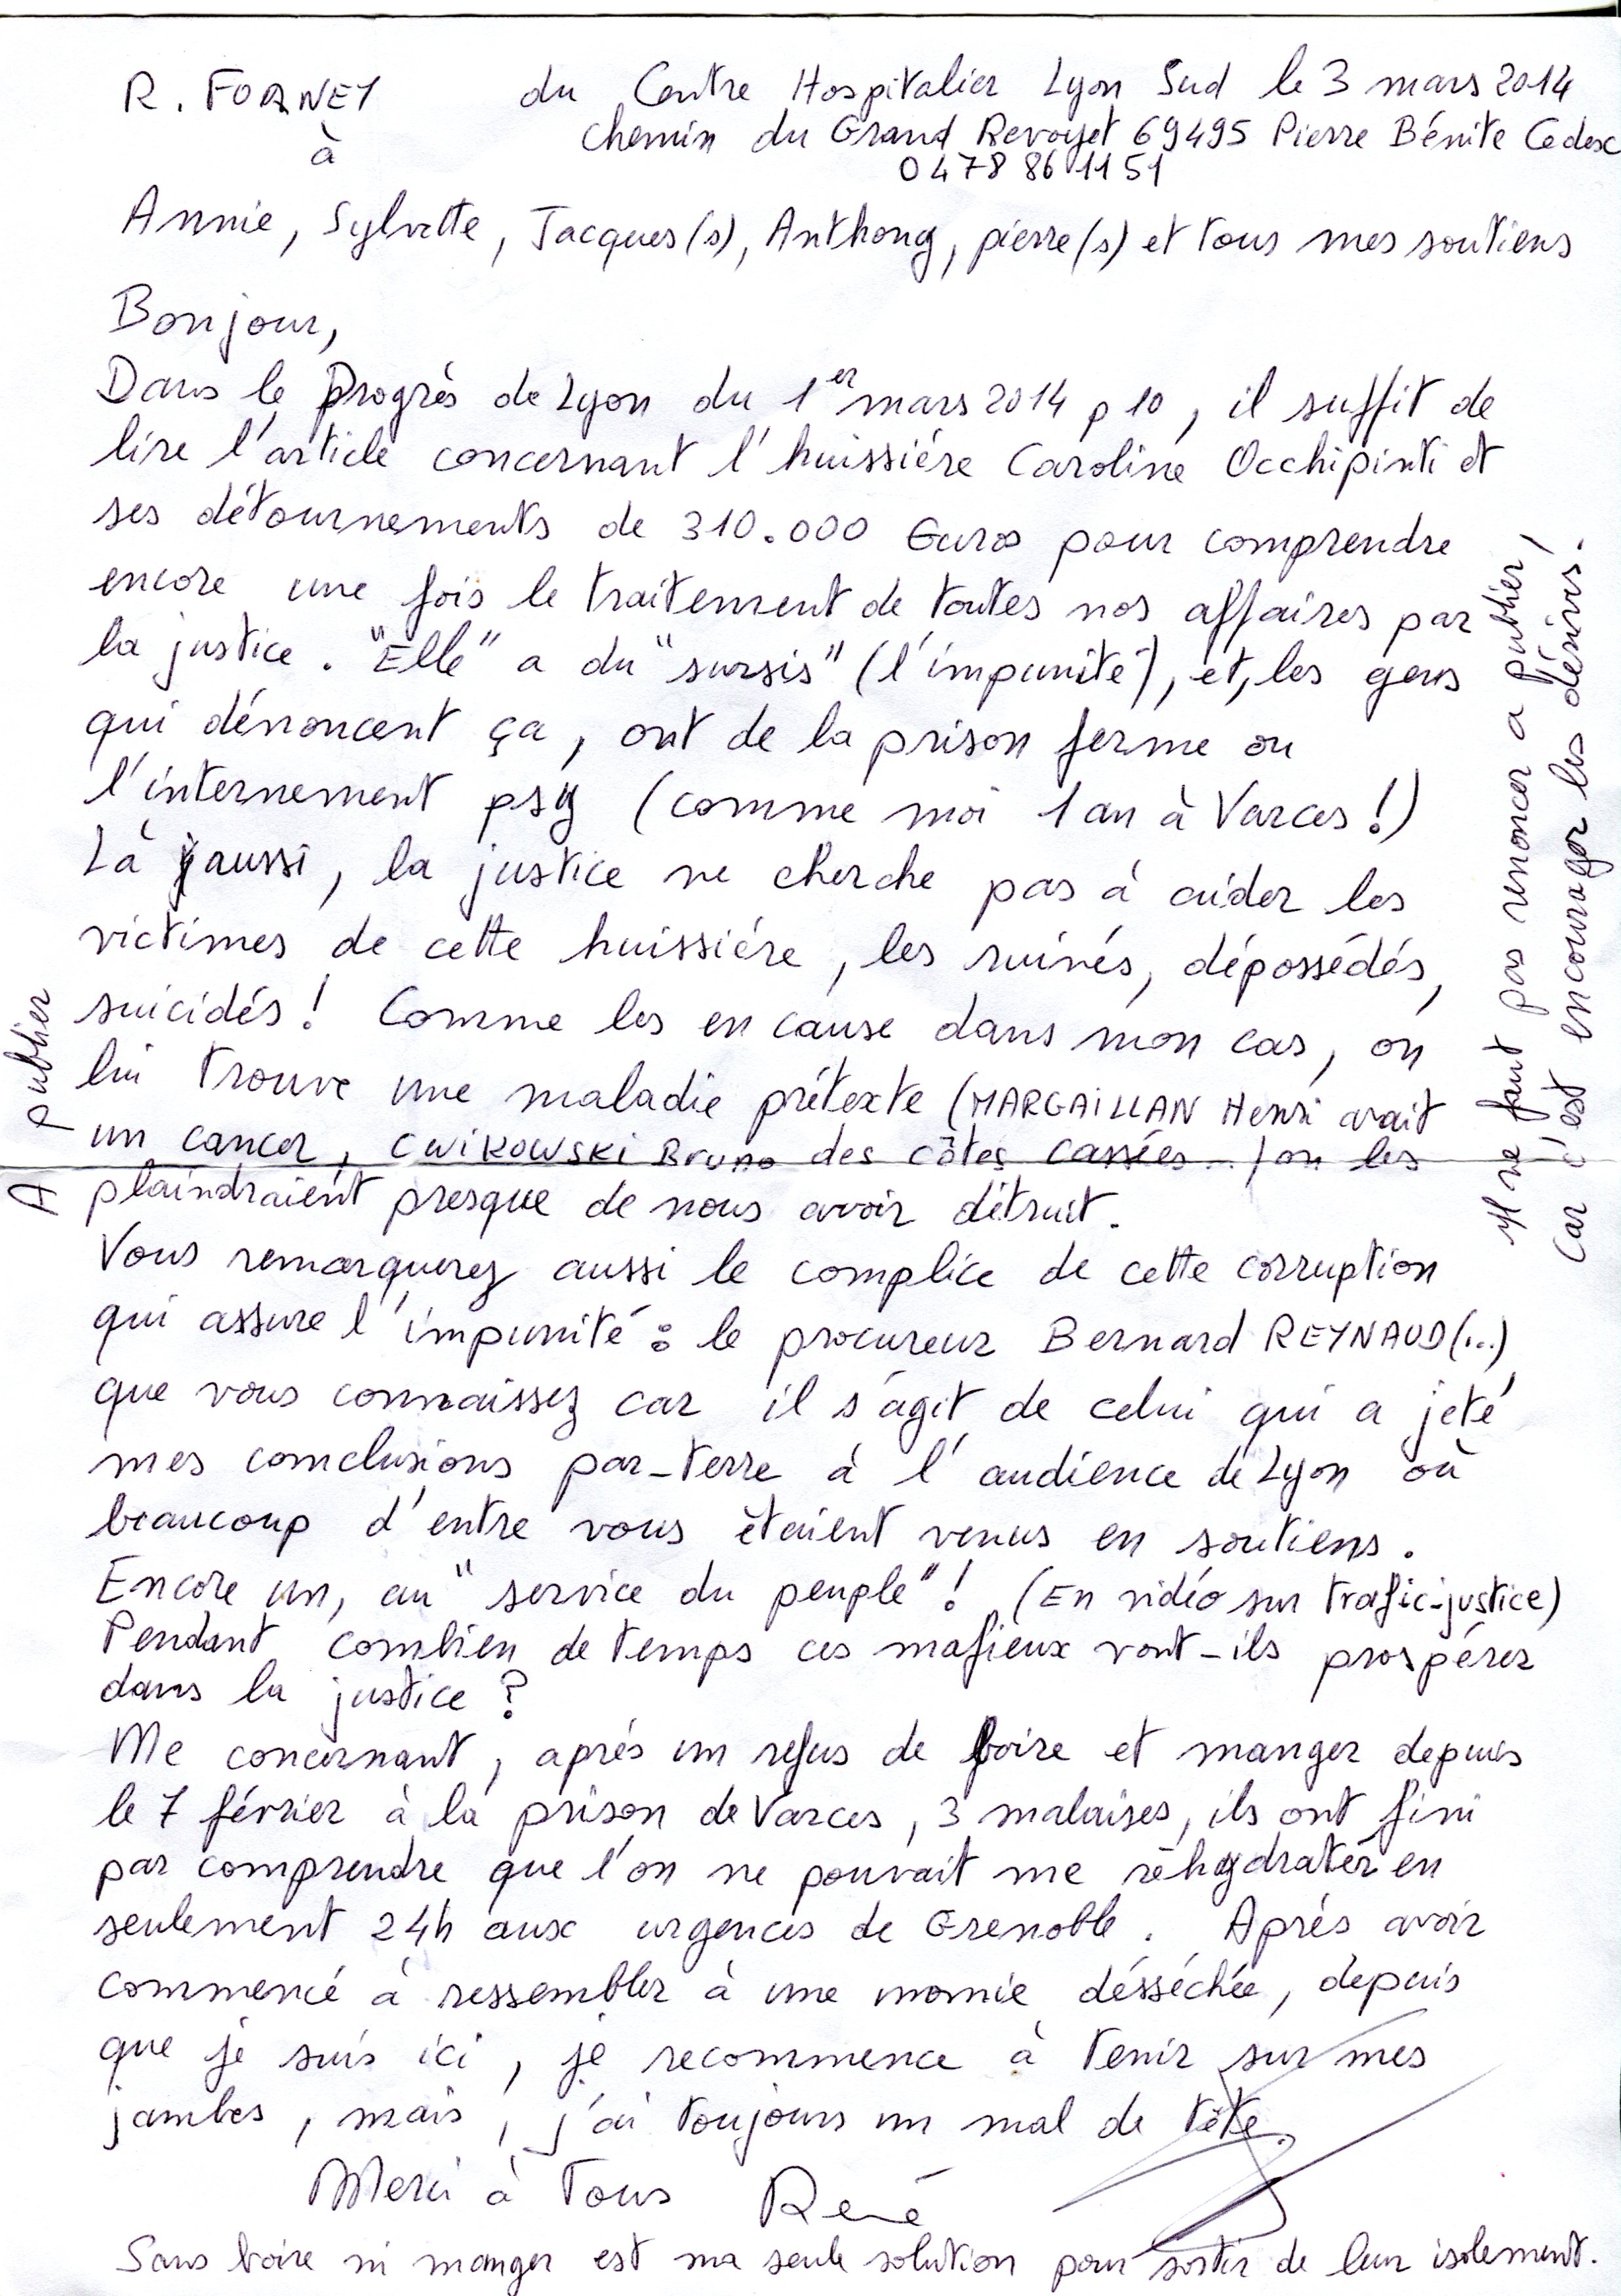 R. FORNEY du Centre Hospitalier Lyon Sud le 3 mars 2014
à chemin du Grand Revoyet 69495 Pierre Bénite Cedex
0478 86 11 51
Annie, Sylvette, Jacques(s), Anthony, pierre(s) et tous mes soutiens
Bonjour,
Dans le Progrès de Lyon du 1er mars 2014 p 10, il suffit de
lire l'article concernant l'huissiére Caroline Occhipinti et
ses détournements de 310.000 Euros pour comprendre
encore une fois le traitement de toutes nos affaires par
la justice. "Elle" a du "sursis" (l'impunité), et, les gens
qui dénoncent ça, ont de la prison ferme ou
l'internement psy (comme moi 1 an à Varces !)
Là aussi, la justice ne cherche pas à aider les
victimes de cette huissiére, les ruinés, dépossédés,
suicidés ! Comme les en cause dans mon cas, on
lui trouve une maladie prétexte (MARGAILLAN Henri avait
un cancer, CWIKOWSKI Bruno des côtes cassées..) on les
plaindraient presque de nous avoir détruit.
Vous remarquerez aussi le complice de cette corruption
qui assure l'impunité : le procureur Bernard REYNAUD (...)
que vous connaissez car il s'agit de celui qui a jeté
mes conclusions par-terre à l'audience de Lyon où
beaucoup d'entre vous étaient venus en soutiens.
Encore un, au "service du peuple" ! (En vidéo sur trafic-justice)
Pendant combien de temps ces mafieux vont-ils prospérer
dans la justice ?
Me concernant, aprés un refus de boire et manger depuis
le 7 février à la prison de Varces, 3 malaises, ils ont fini
par comprendre que l'on ne pouvait me réhydrater en
seulement 24h aux urgences de Grenoble. Aprés avoir
commencé à ressembler à une momie désséchée, depuis
que je suis ici, je recommence à tenir sur mes
jambes, mais, j'ai toujours un mal de tête.
Merci à Tous René
Sans boire ni manger est ma seule solution pour sortir de leur isolement.
A publier
Il ne faut pas renoncer a publier,
car c'est encourager les dérives.